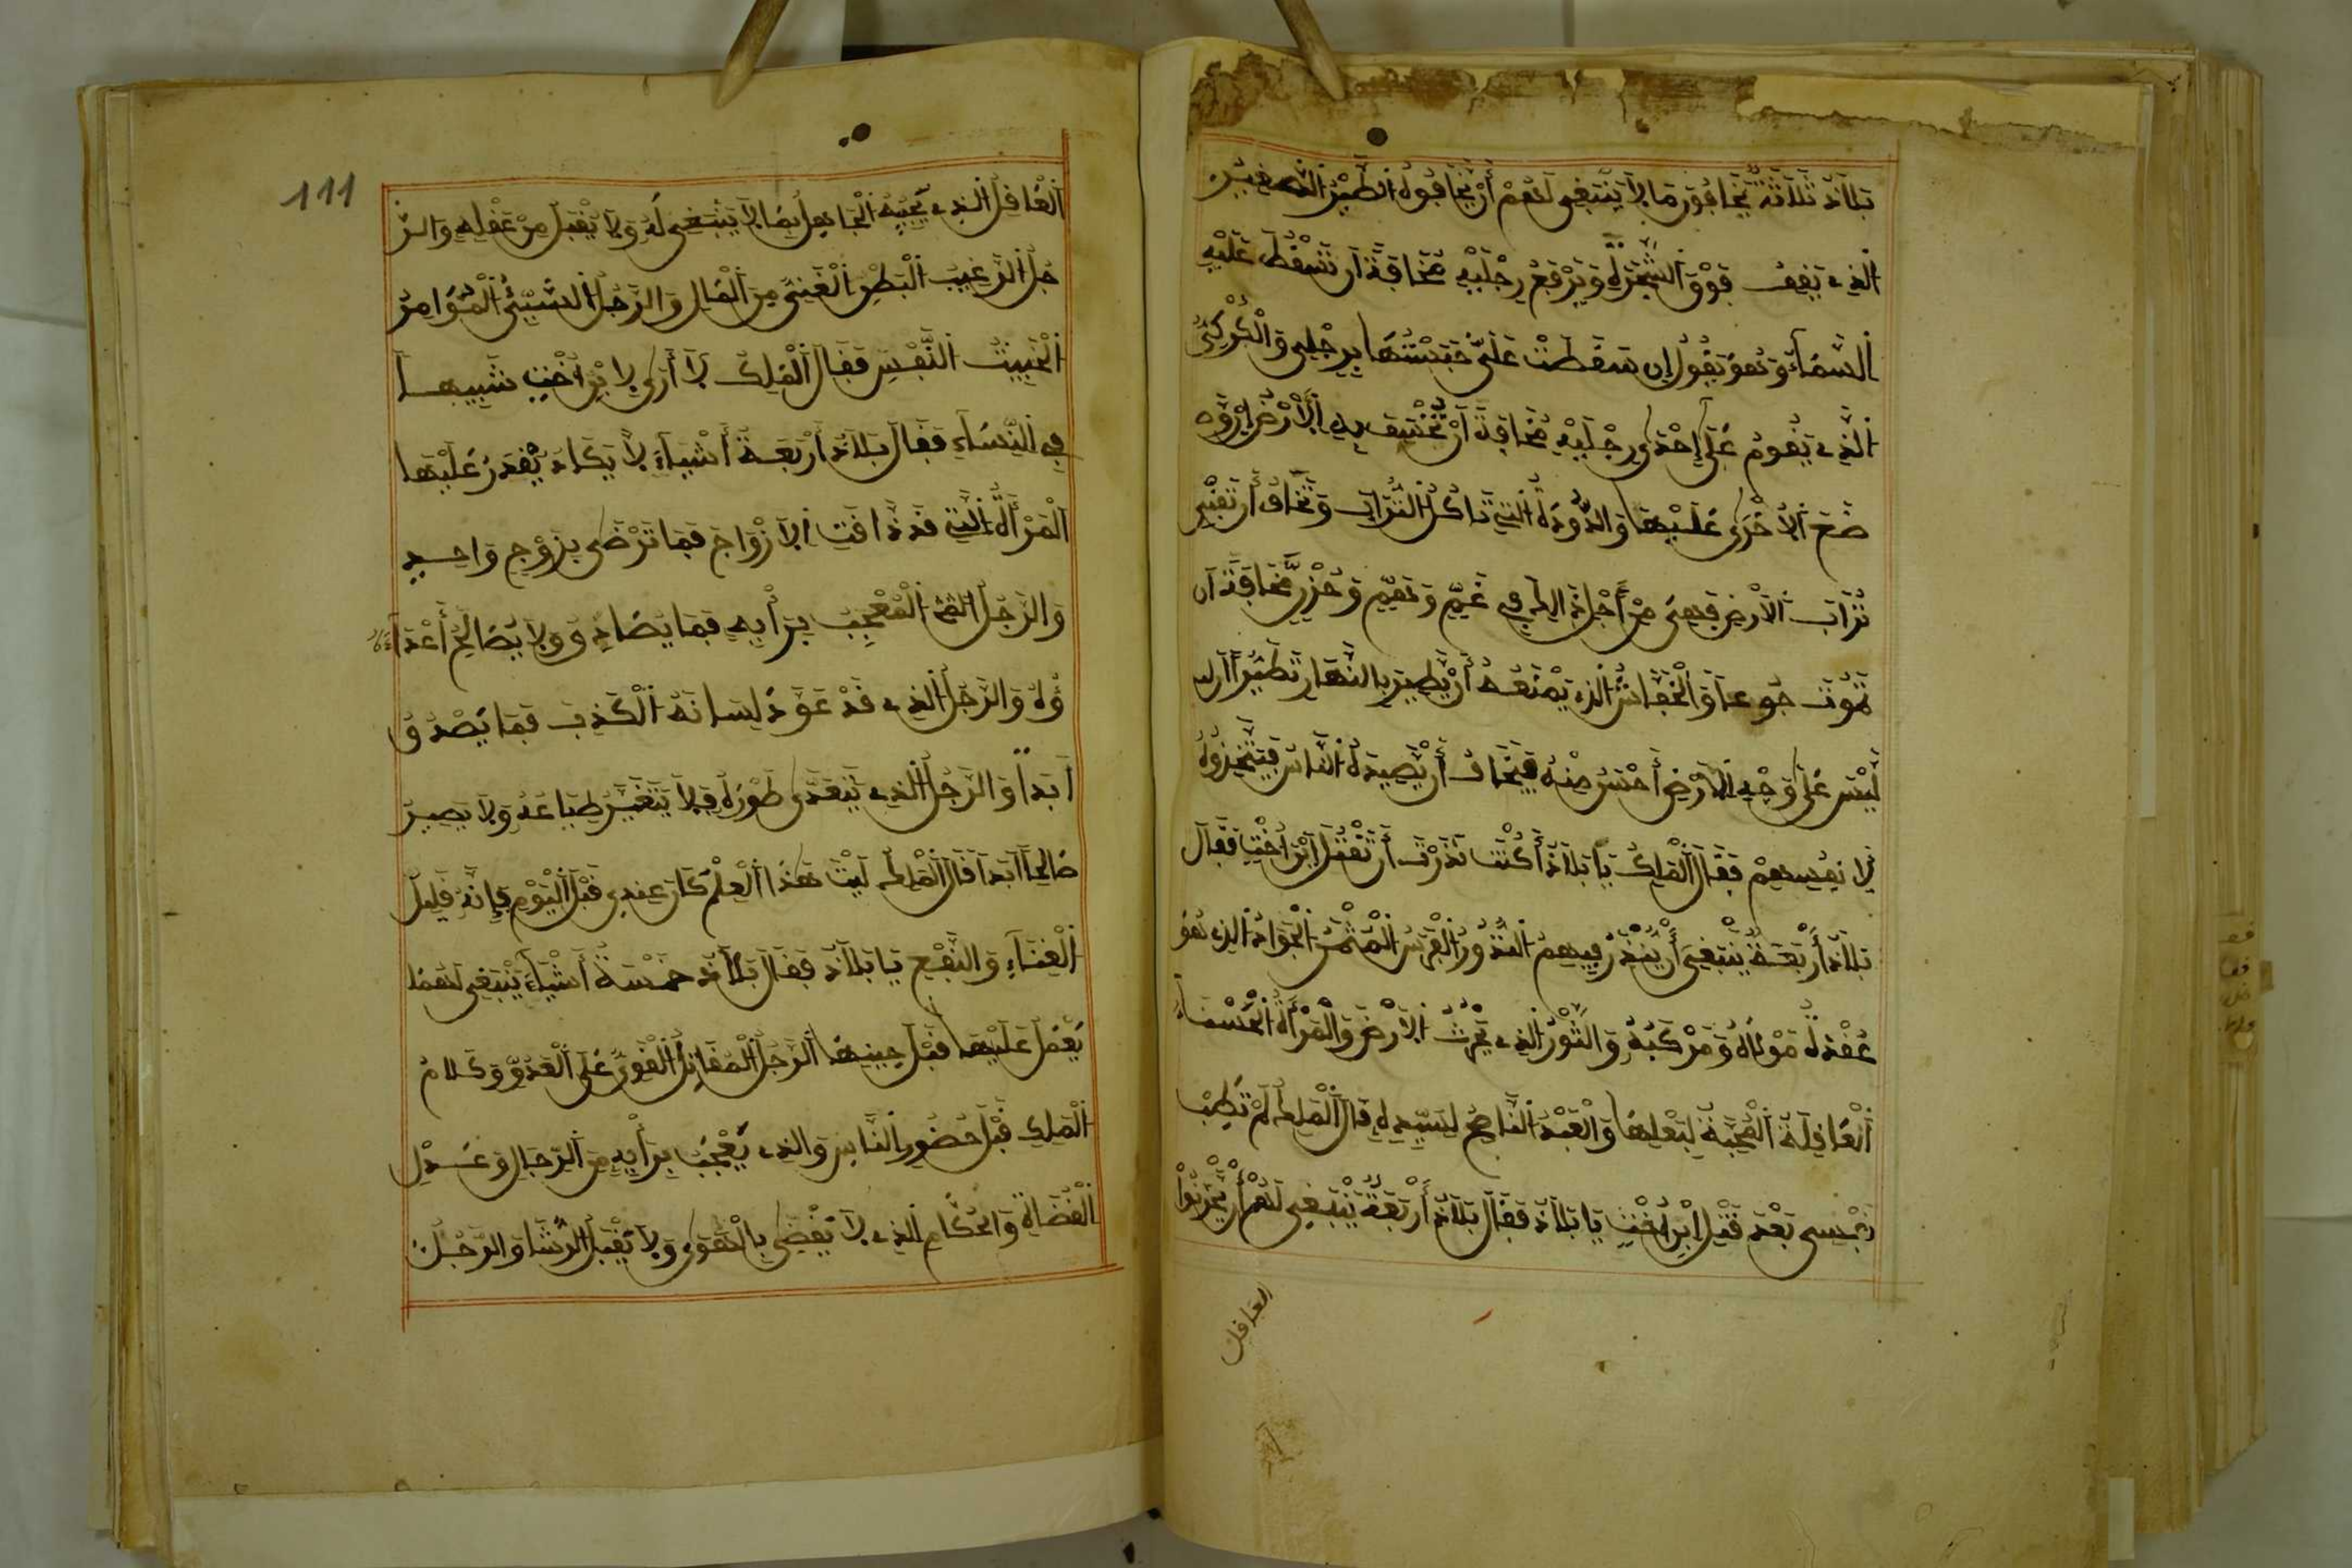 بَلَاذ ثَلَاثَةٌ يَخَافُونَ مَا لَا يَنْبَغِي لَهُمْ أَنْ يَخَافُوهُ الطَّيْرُ الصغير
الذي يَقِفُ فَوْقَ الشَّجَرَةِ وَيَرْفَعُ رِجْلَيْهِ مَخَافَةَ أن تَسْقُطَ عَلَيْهِ
السَّمَاءُ وَهُوَ يَقُولُ إن سَقَطَتْ عَلَيَّ حَبَسْتُهَا بِرِجْلِي وَالْكُرْكِيُّ
الَّذِي يَقُومُ عَلَى إِحْدَى رِجْلَيْهِ مَخَافَةَ أَنْ تَخْسِفَ بِهِ الْأَرْضُ إنْ وَ
ضَعَ الأُخْرَى عَلَيْهَا وَالدُّودَةُ الَّتِي تَاكُلُ التُّرَابَ وَتَخَافُ أَن تَفْنِي
تُرَابَ الْأَرْضِ فَهِيَ مِنْ أَجْلِ ذَالِكَ فِي غَمٍّ وَهَمٍّ وَحُزْنٍ مَّخَافَةَ أن
تَمُوتَ جُوعا وَالْخُفَّاشُ الذي يَمْنَعُهُ أَنْ يَّطِيرَ بِالنَّهَارِ تَطَيُّرًا أن
لَيْسَ عَلَى وَجْهِ الْأَرْضِ أَحْسَنُ مِنْهُ فَيَخَافُ أَنْ يَّصِيدَهُ النَّاسُ فَيَتَّخِذُوهُ
لِأَنفُسِهِمْ فَقَالَ الْمَلِكُ يَا بَلَاذُ أَكُنْتَ نَذَرْتَ أَن تَقْتُلَ ابْنَ أُخْتِي فَقَالَ
بَلَاذُ أَرْبَعَةٌ يَنْبَغِي أَنْ يُنْذَرَ فِيهِمُ النُّذُورُ الْفَرَسُ الْمُثْمَنُ الْجَوَادُ الذي هُوَ
عُقْدَةُ مَوْلَاهُ وَمَرْكَبُهُ وَالثَّوْرُ الذي يَحْرُثُ الْأَرْضَ وَالْمَرْأَةُ الْحَسْنَاءُ
الْعَاقِلَةُ الْمُحِبَّةُ لِبَعْلِهَا وَالْعَبْدُ النَّاصِحُ لِسَيِّدِهِ قَالَ الْمَلِكُ لَمْ تَطِبْ
نَفْسِي بَعْدَ قَتْلِ ابْنِ أُخْتِي يَا بَلَاذ فَقَالَ بَلَاذُ أَرْبَعَةٌ يَنْبَغِي لَهُمْ أَنْ يَّحْزَنُوا
العاقل
111
الْعَاقِلُ الذي يُجِيبُهُ الْجَاهِلُ بِمَا لَا يَنْبَغِي لَهُ وَلَا يَقْبَلُ مِنْ عَقْلِهِ وَالرَّ
جُلُ الرَّغِيبُ الْبَطِرُ الْغَنِيُّ مِنَ الْمَالِ وَالرَّجُلُ السَّيِّئُ الْمُؤَامِرُ
الْخَبِيثُ النَّفْسِ فَقَالَ الْمَلِكُ لَا أَرَى لِابْنِ أُخْتِي شَبِيهًا
فِي النِّسَاءِ فَقَالَ بَلَاذُ أَرْبَعَةُ أَشْيَاءَ لَا يَكَادُ يُقْدَرُ عَلَيْهَا
الْمَرْأَةُ الَّتِي قَدْ ذَاقَتِ الْأَزْوَاجَ فَمَا تَرْضَى بِزَوْجٍ وَاحِدٍ
وَالرَّجُلُ الْمُعْجِبُ بِرَأْيِهِ فَمَا يُصَادِ وَلَا يُصَالِحُ أَعْدَاءَهُ
وَالرَّجُلُ الذي قَدْ عَوَّدَ لِسَانَهُ الْكَذِبَ فَمَا يَصْدُقُ
أَبَدًا وَالرَّجُلُ الذي يَتَعَدَّى طَوْرَهُ فَلَا يَتَغَيَّرُ طِبَاعُهُ وَلَا يَصِيرُ
صَالِحًا أَبَدًا قَالَ الْمَلِكُ لَيْتَ هَذَا الْعِلْمَ كَانَ عِندِي قَبْلَ الْيَوْمِ فَإِنَّهُ قَلِيلُ
الْغَنَاءِ وَالنَّفْعِ يَا بَلَاذُ فَقَالَ بَلَاذُ خَمْسَةُ أَشْيَاءَ يَنْبَغِي لَهَا
يُعْمَلُ عَلَيْهَا قَبْلَ حِينِهَا الرَّجُلُ الْمُقَاتِلُ الْقَوِيُّ عَلَى الْعَدُوِّ وَكَلَامُ
الْمَلِكِ قَبْلَ حُضُورِ النَّاسِ وَالذي يُعْجَبُ بِرَأْيِهِ مِنَ الرِّجَالِ وَعَدْلُ
الْقُضَاةِ وَالْحُكَّامِ الذي لَا يَقْضِي بِالْهَوَى وَلَا يَقْبَلُ الرُّشَا وَالرَّجُلُ